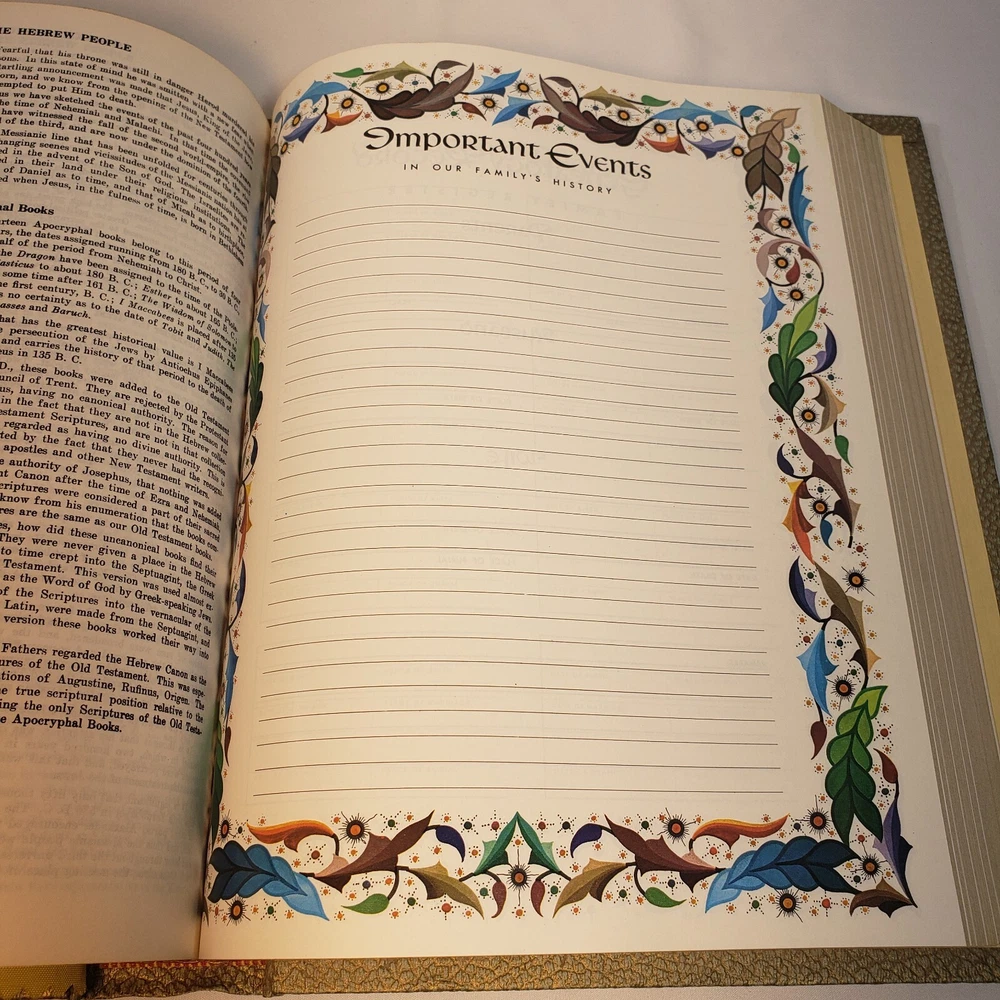 HE HEBREW PEOPLE
fearful that his throne was still in danger Herod
In this state of mind he was smitten with
startling announcement was made that Jesus, King of
born, and we know from the opening of the New
tempted to put Him to death.
us we have sketched the events of the past four hundred
the time of Nehemiah and Malachi. In that
have witnessed the fall of the second world empire, the
of the third, and are now under the dominion of the
Messianic line that has been unfolded for centuries
changing scenes and vicissitudes of the Jewish nation has
ed in the advent of the Son of God. The Israelites have
ed in their land under their religious institutions
of Daniel as to time, and that of Micah as to birthplace
ed when Jesus, in the fulness of time, is born in Bethlehem
hal Books
rteen Apocryphal books belong to this period of four
rs, the dates assigned running from 180 B. C. to 30 B. C.
alf of the period from Nehemiah to Christ.
the Dragon have been assigned to the time of the Ptole-
lasticus to about 180 B. C.; Esther to about 165 B. C.;
some time after 161 B. C.; The Wisdom of Solomon
he first century, B. C.; I Maccabees is placed after 135
s no certainty as to the date of Tobit and Judith. The
asses and Baruch.
hat has the greatest historical value is I Maccabees
e persecution of the Jews by Antiochus Epiphanes
and carries the history of that period to the death of
eus in 135 B. C.
D., these books were added to the Old Testament
ouncil of Trent. They are rejected by the Protestant
us, having no canonical authority. The reason for
in the fact that they are not in the Hebrew
estament Scriptures, and are not in that collection
regarded as having no divine authority. This is
ted by the fact that they never had the recogni-
apostles and other New Testament writers.
e authority of Josephus, that nothing was added
nt Canon after the time of Ezra and Nehemiah,
criptures were considered a part of their sacred
know from his enumeration that the books com-
res are the same as our Old Testament books.
es, how did these uncanonical books find their
They were never given a place in the Hebrew
to time crept into the Septuagint, the Greek
Testament. This version was used almost ex-
as the Word of God by Greek-speaking Jews.
of the Scriptures into the vernacular of the
Latin, were made from the Septuagint, and
version these books worked their way into
Fathers regarded the Hebrew Canon as the
ures of the Old Testament. This was espe-
tions of Augustine, Rufinus, Origen. The
he true scriptural position relative to the
ing the only Scriptures of the Old Testa-
e Apocryphal Books.
Important Events
IN OUR FAMILY'S HISTORY